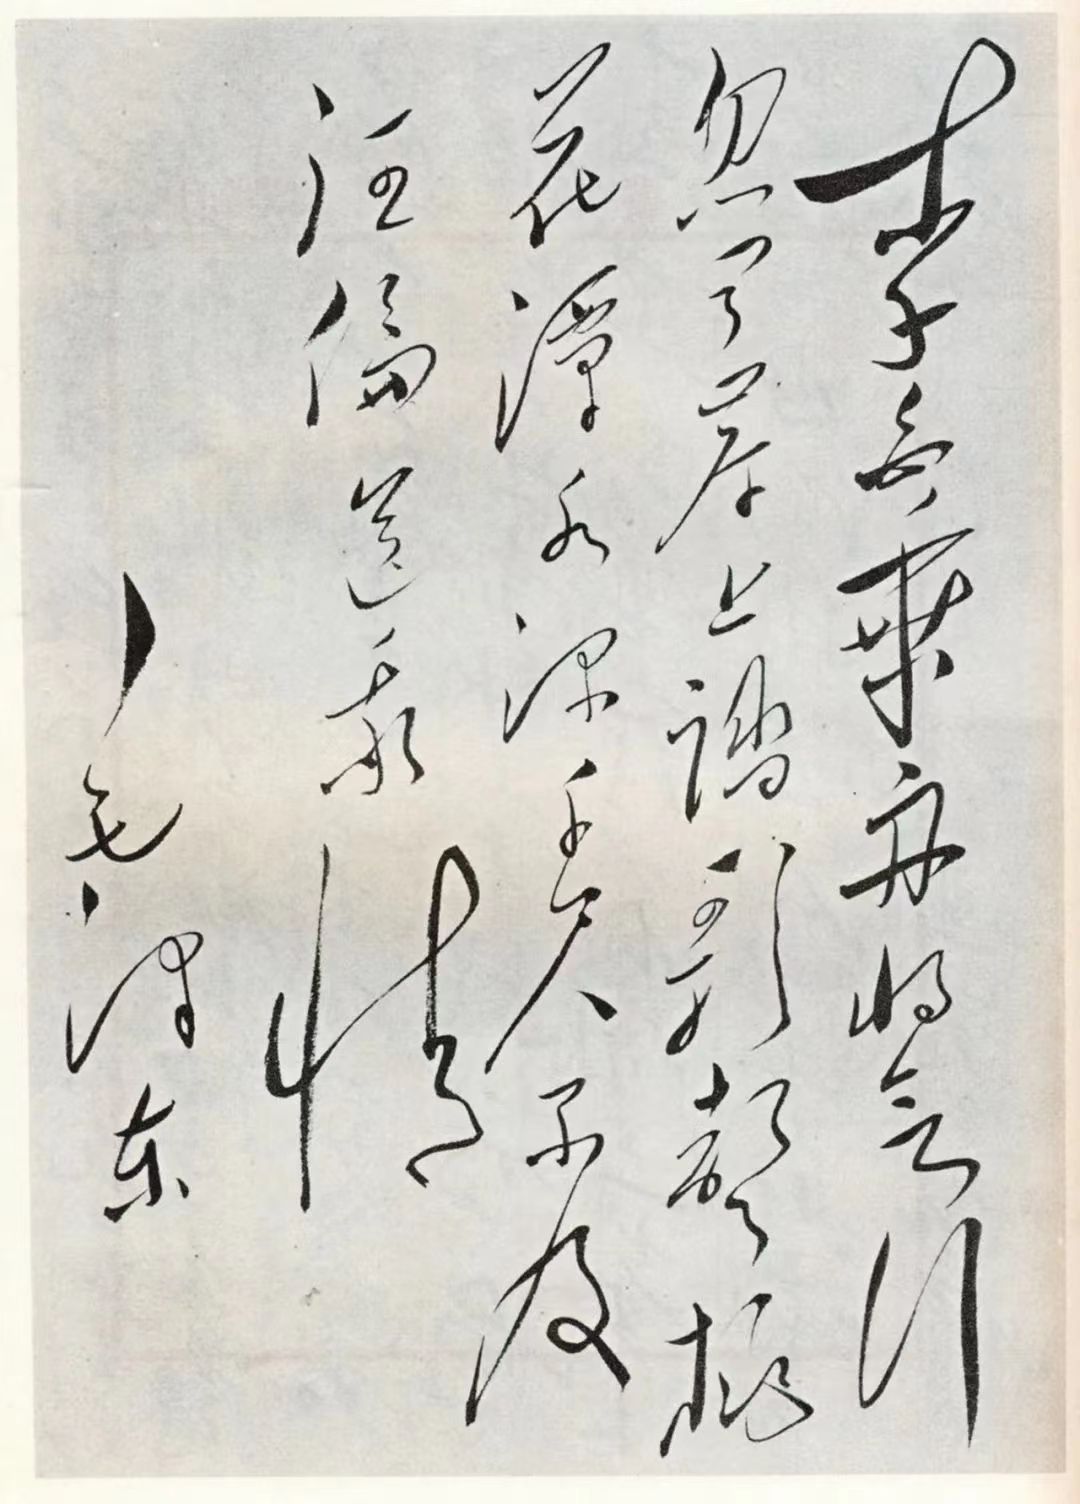 李白乘舟将欲行
忽闻岸上踏歌声桃
花潭水深千尺不及
汪伦送我情
毛泽东